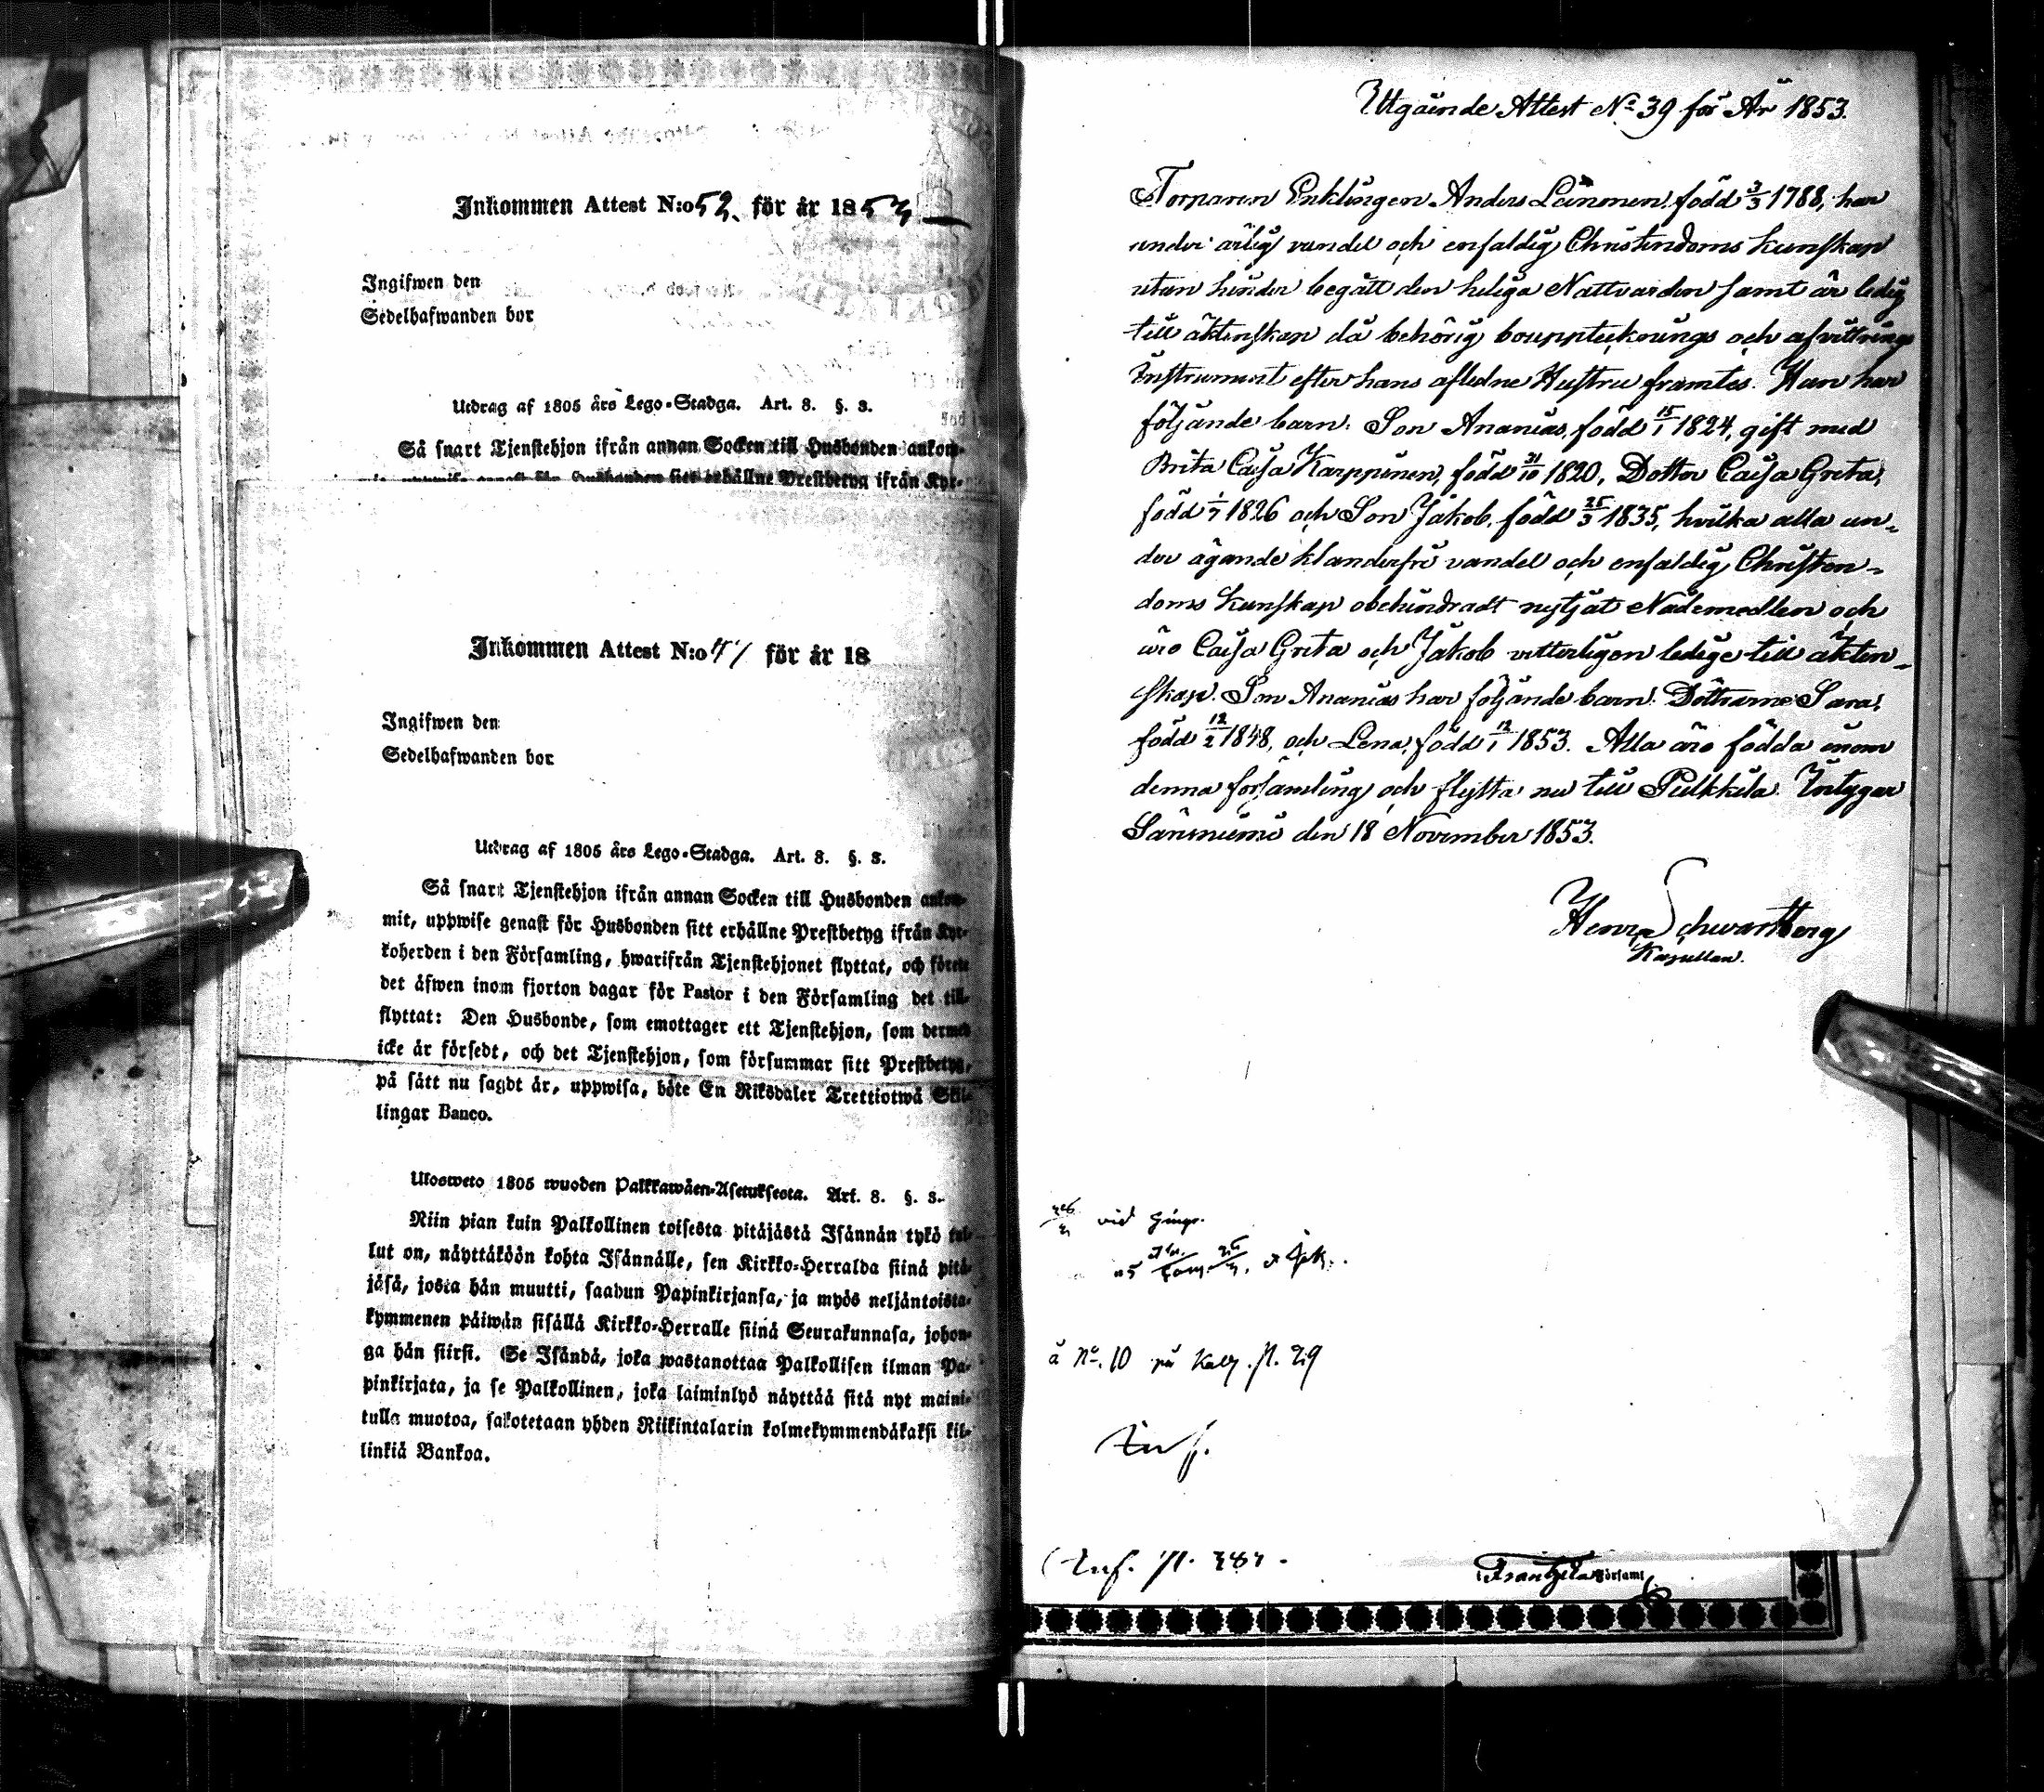 Inkommen Attest N:o 52. för år 1853
Ingifwen den
Sedelhafwanden bor
Utdrag af 1805 års Lego-Stadga. Art. 8. §. 3.
Så snart Tjenstehjon ifrån annan Socken till Husbonden ankom-
erhållne Prestbetyg ifrån Kyr-
Inkommen Attest N:o 41 för år 18
Ingifwen den
Sedelhafwanden bor
Utdrag af 1805 års Lego-Stadga. Art. 8. §. 3.
Så snart Tjenstehjon ifrån annan Socken till Husbonden ankom-
mit, uppwise genast för Husbonden sitt erhållne Prestbetyg ifrån Kyr-
koherden i den Församling, hwarifrån Tjenstehjonet flyttat, och förete
det äfwen inom fjorton dagar för Pastor i den Församling det till-
flyttat: Den Husbonde, som emottager ett Tjenstehjon, som dermed
icke är försedt, och det Tjenstehjon, som försummar sitt Prestbetyg,
på sätt nu sagdt är, uppwisa, böte En Riksdaler Trettiotwå Skil-
lingar Banco.
Ulosweto 1805 wuoden Palkkawäen-Asetuksesta. Art. 8. §. 3.
Niin pian kuin Palkollinen toisesta pitäjästä Isännän tykö tul-
lut on, näyttäköön kohta Isännälle, sen Kirkko-Herralda siinä pitä-
jäsä, josta hän muutti, saadun Papinkirjansa, ja myös neljäntoista-
kymmenen päiwän sisällä Kirkko-Herralle siinä Seurakunnasa, johon-
ga hän siirsi. Se Isändä, joka wastanottaa Palkollisen ilman Pa-
pinkirjata, ja se Palkollinen, joka laiminlyö näyttää sitä nyt maini-
tulla muotoa, sakotetaan yhden Riikintalarin kolmekymmendäkaksi kil-
linkiä Bankoa.
Utgående Attest No 39 för År 1853.
Torparen Enklingen Anders Leinonen, född 3/3 1788, har
under ärlig vandel och enfaldig Christendoms kunskap
utan hinder begått den heliga Nattvarden samt är ledig
till äktenskap då behörig bouppteknings och afvittrings
Instrument efter hans aflidne Hustru framtes. Han har
följande barn: Son Ananias, född 15/1 1824, gift med
Brita Caisa Karppinen, född 31/10 1820, Dotter Caisa Greta,
född 1/7 1826 och Son Jakob, född 25/3 1835, hvilka alla un-
der ägande klanderfri vandel och enfaldig Christen-
doms kunskap obehindradt nytjat Nådemedlen och
äro Caisa Greta och Jakob vetterligen lediga till äkten-
skap. Son Ananias har följande barn: Döttrarne Sara,
född 12/2 1848, och Lena, född 12/1 1853. Alla äro födda inom
denna församling och flytta nu till Pulkkila. Intygar
Säräisniemi den 18 November 1853.
Henr. Schwartzberg
Kapellan.
vid
å No. 10 på Kalg. p. 29
Inf.
Inf. p. 387.
Frantzila Församl